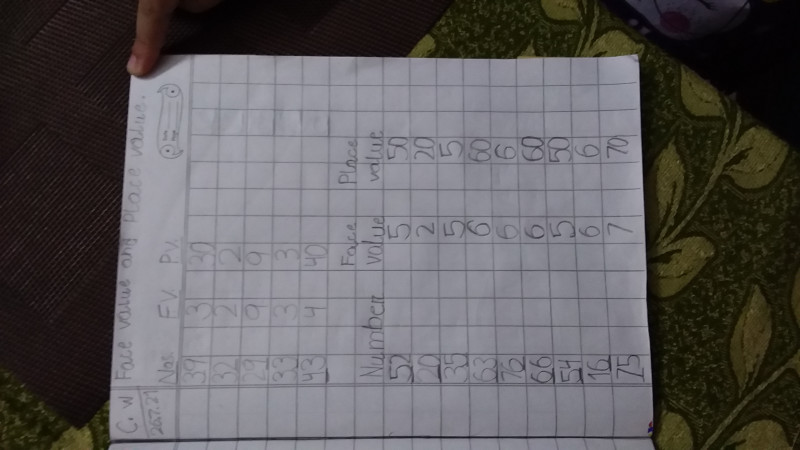 C.W Face value and Place value.
26.7.21
Nos. F.V. P.V.
39 3 30
32 2 2
29 9 9
33 3 3
43 4 40
Number Face value Place value
52 5 50
20 2 20
35 5 5
63 6 60
76 6 6
66 6 60
54 5 50
16 6 6
75 7 70